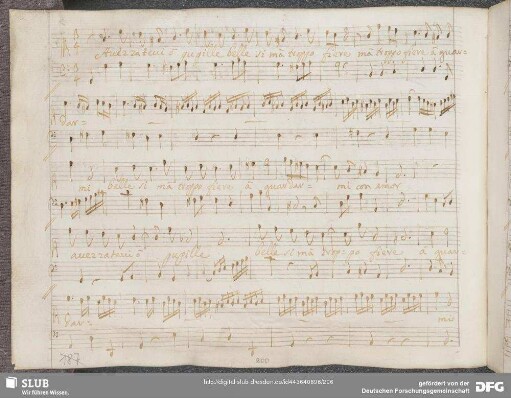 Avezzatevi ò pupille belle si mà troppo fiere mà troppo fiere à guar=
dar=
mi belle si mà troppo fiere à guardar= mi con amor
avezzatevi ò pupille belle si mà troppo fiere à guar=
dar= mi
187
SLUB
Wir führen Wissen.
http://digital.slub-dresden.de/id443640696/206
gefördert von der
Deutschen Forschungsgemeinschaft
DFG